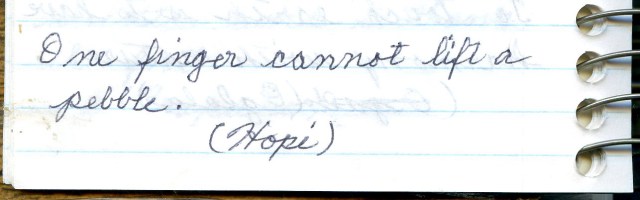 One finger cannot lift a
pebble.
(Hopi)